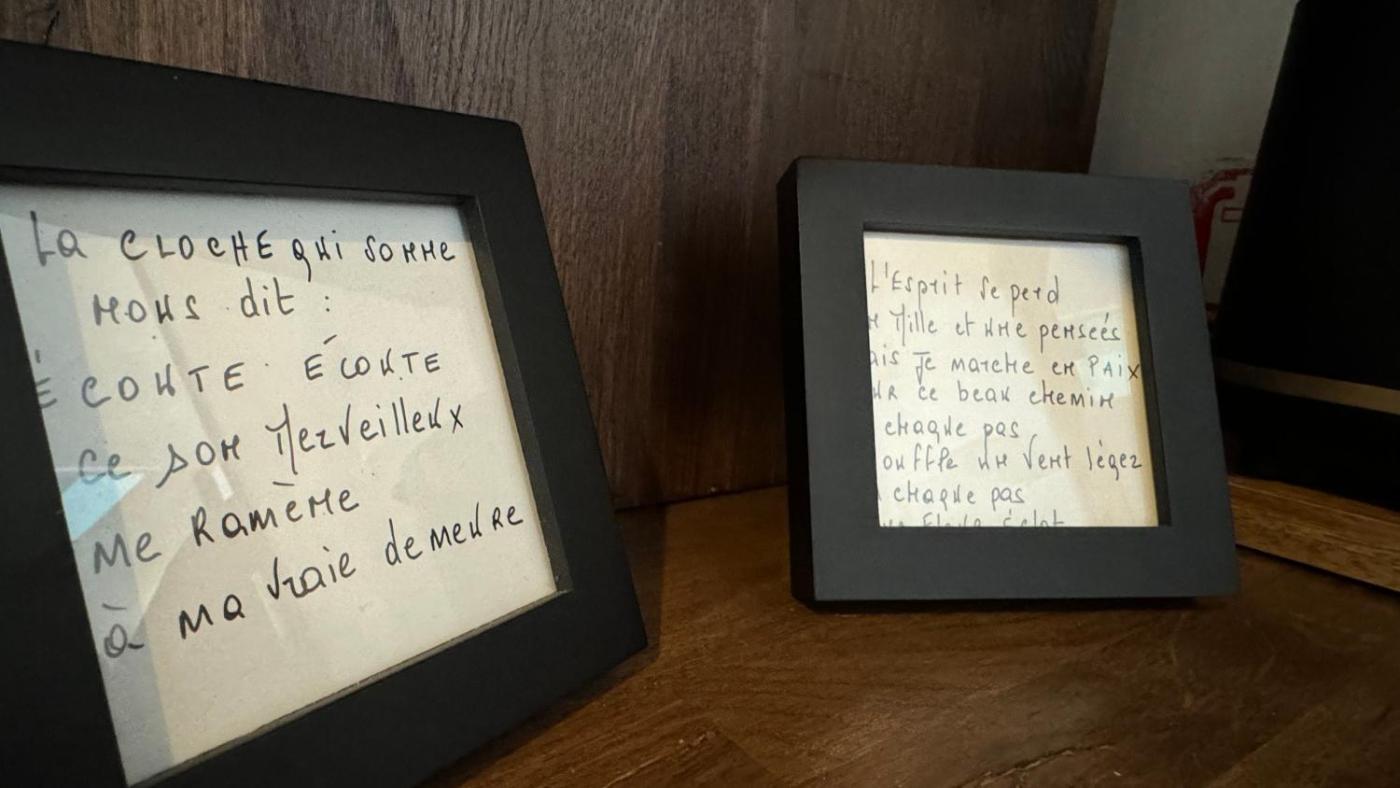 La CLOCHE qui SONNE
NOUS dit :
ÉCOUTE ÉCOUTE
ce son Merveilleux
me RamèNe
à ma vraie demeuRe
L'Esprit se perd
Mille et une penseés
ais Je marche en PAiX
uR ce beau chemin
chaque pas
ouffle un vent léger
chaque pas